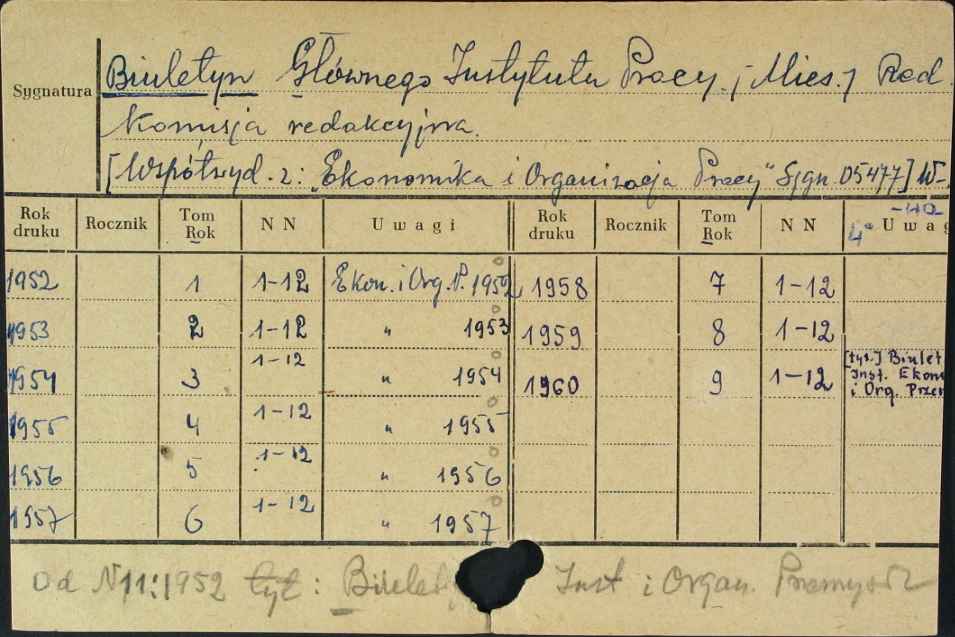 Sygnatura
Biuletyn Głównego Instytutu Pracy. / Mies. / Red.
Komisja redakcyjna.
[Współwyd. z: „Ekonomika i Organizacja Pracy" Sygn. 05477] W-
-40
4°
Rok druku Rocznik Tom Rok N N Uwagi Rok druku Rocznik Tom Rok N N Uwag
1952 1 1-12 Ekon. i Org. P. 1952 1958 7 1-12
1953 2 1-12 „ 1953 1959 8 1-12
1954 3 1-12 „ 1954 1960 9 1-12 [tyt.] Biulet
Inst. Ekon
i Org. Przem
1955 4 1-12 „ 1955
1956 5 1-12 „ 1956
1957 6 1-12 „ 1957
Od N 11: 1952 tyt: Inst i Organ.